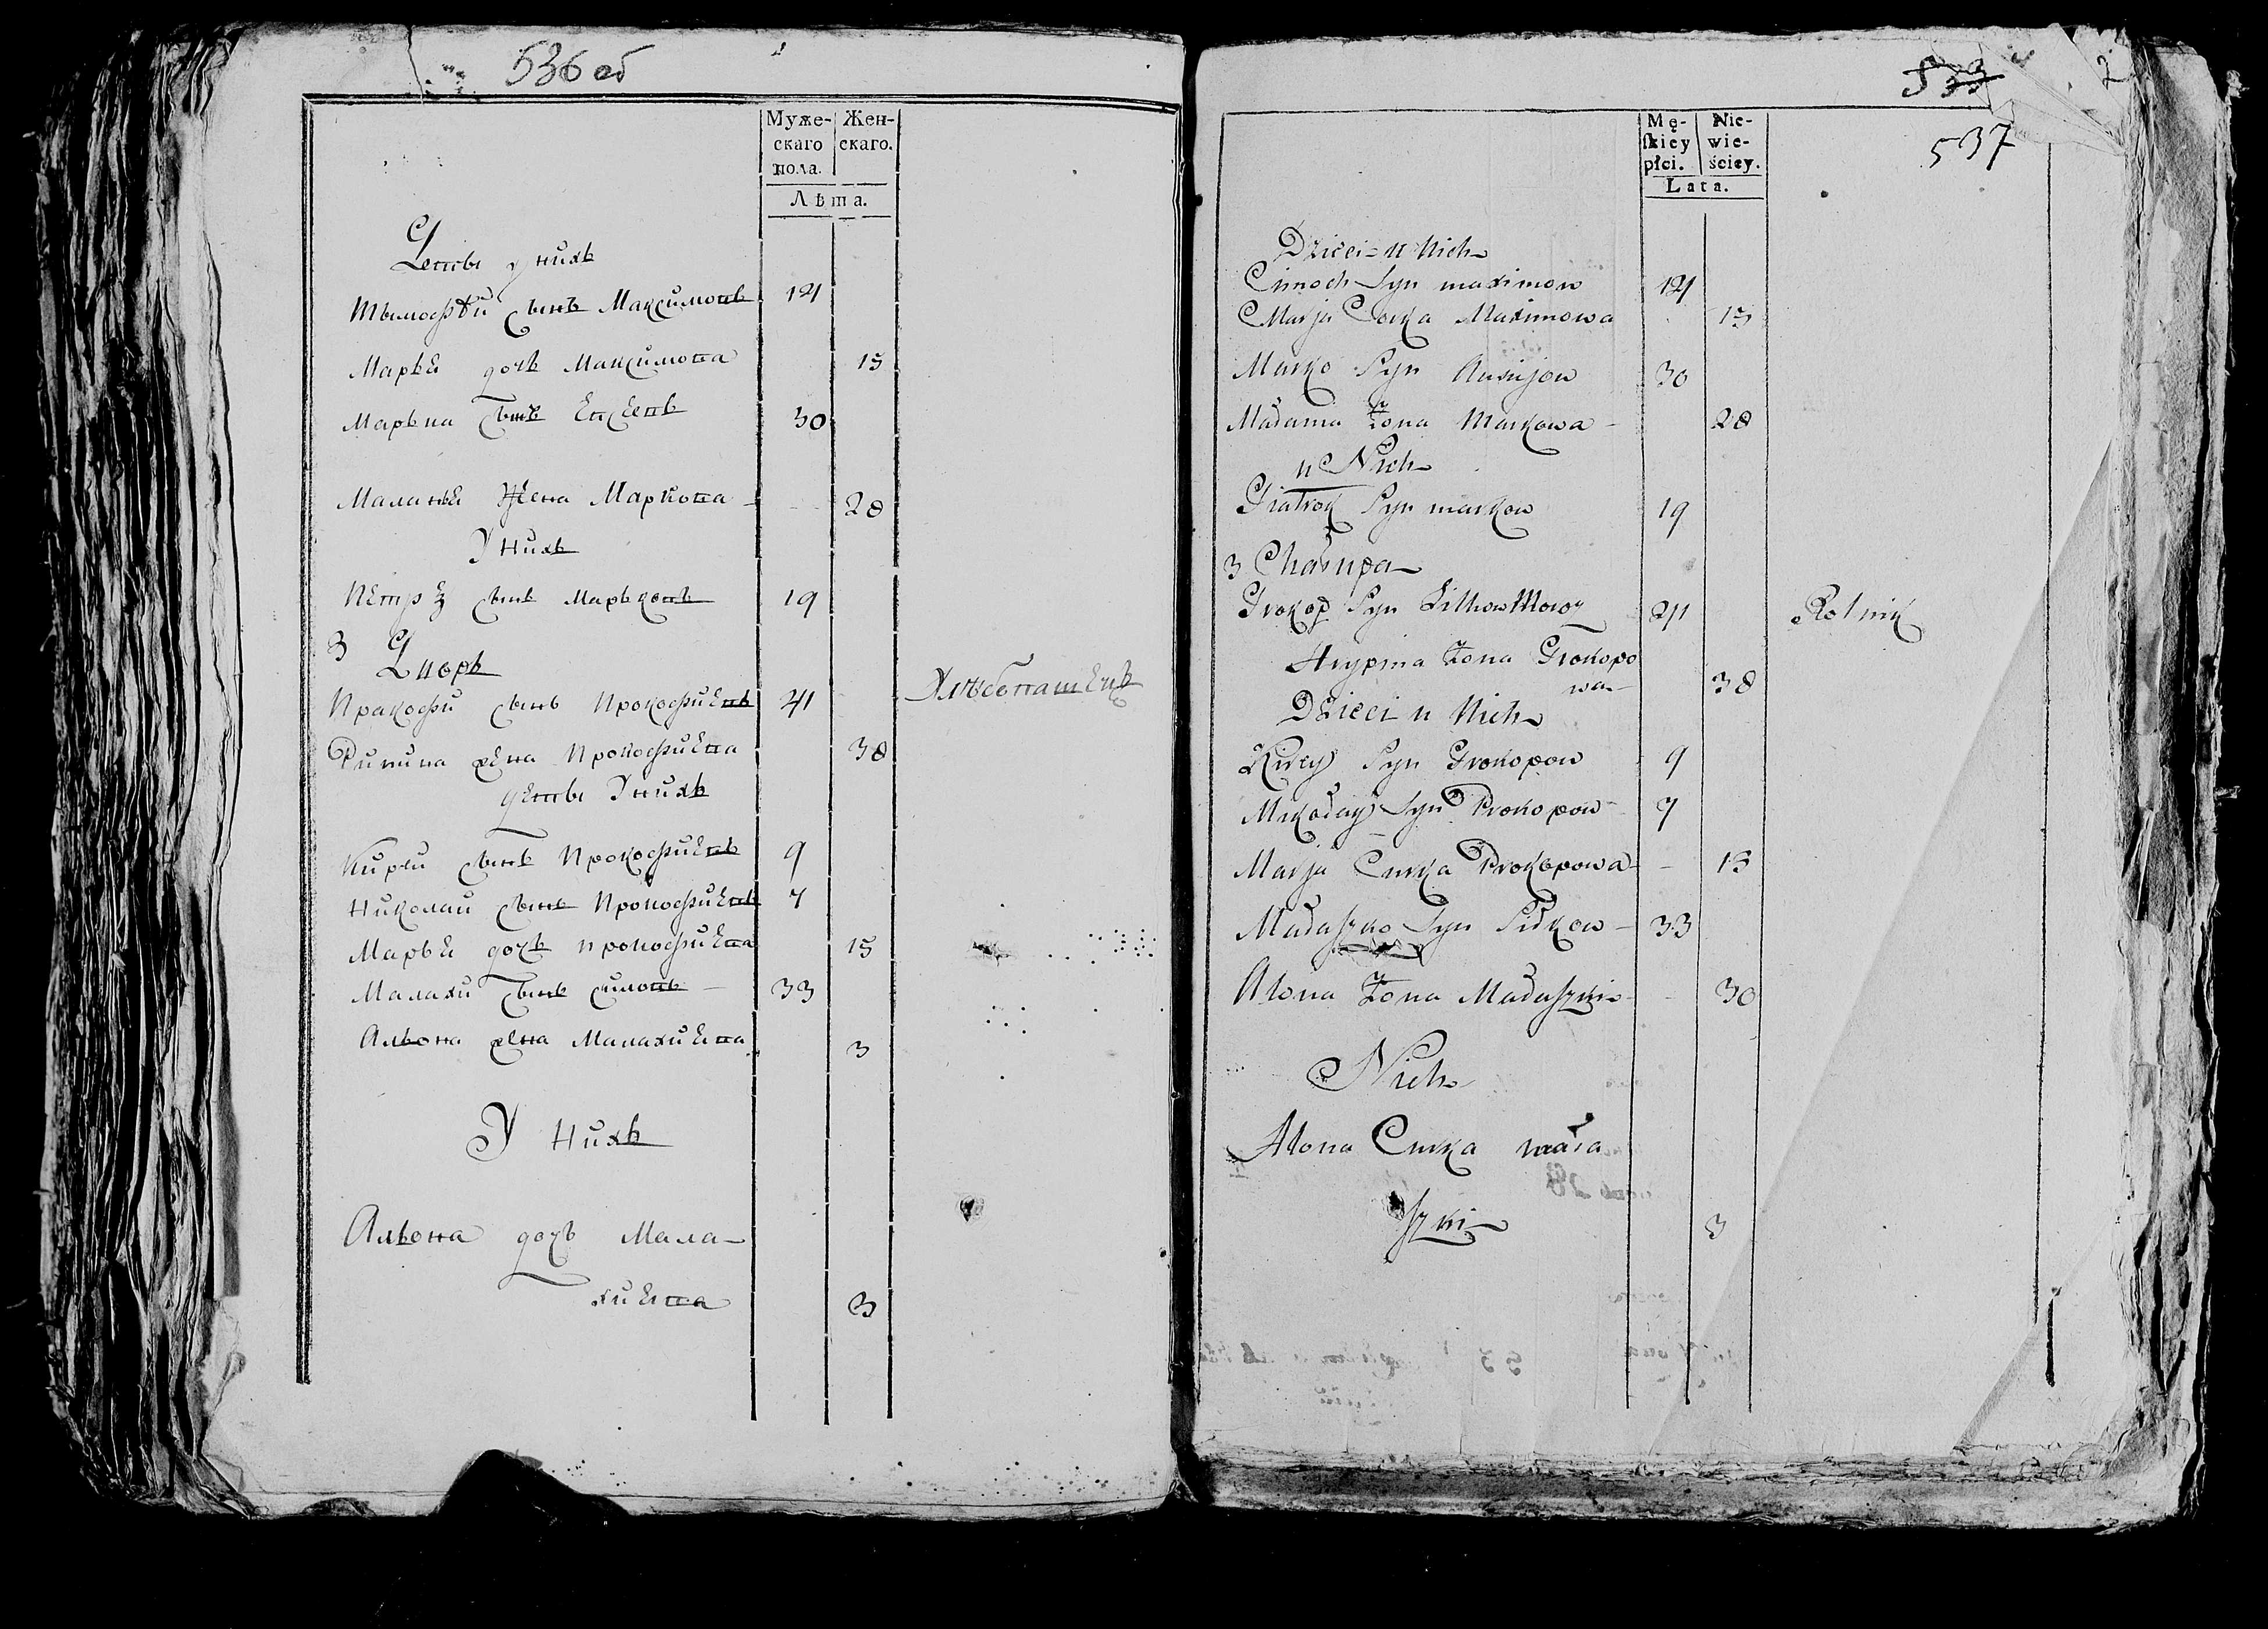 536 об
Муже-
скаго
пола.
Жен-
скаго.
Лѣта.
Дети у нихъ
Тымофѣй сынъ Максимовъ 14
Марья дочь Максимова 15
Марька сынъ Евсеевъ 30
Маланья Жена Маркова 28
У нихъ
Петръ сынъ Марковъ 19
3 Дворъ
Пракофи сынъ Прокофиевъ 41 Хлѣбопашецъ
жена Прокофиева 38
дети У нихъ
сынъ Прокофиевъ 9
Николаи сынъ Прокофиевъ 7
Марья дочь Прокофиева 15
Малахи сынъ 33
Альона жена Малахиева 3
У нихъ
Альона дочь Мала-
хиева 3
533
2
537
Mę-
skiey
płci.
Nie-
wie-
ściey.
Lata.
Dzieci u Nich
Cimoch Syn maximow 14
Marja Corka Maximowa 15
Marko Syn 30
Małania Żona Markowa 28
u Nich
Piatrok Syn markow 19
3 Chałupa
Prokop Syn 41 Rolnik
Żona Prokopo
wa 38
Dzieci u Nich
Syn Prokopow 9
Mikołay Syn Prokopow 7
Marja Curka Prokopowa 15
Małaszko Syn 33
Alona Żona Małaszki 30
Nich
Alona Curka mała
szki 3